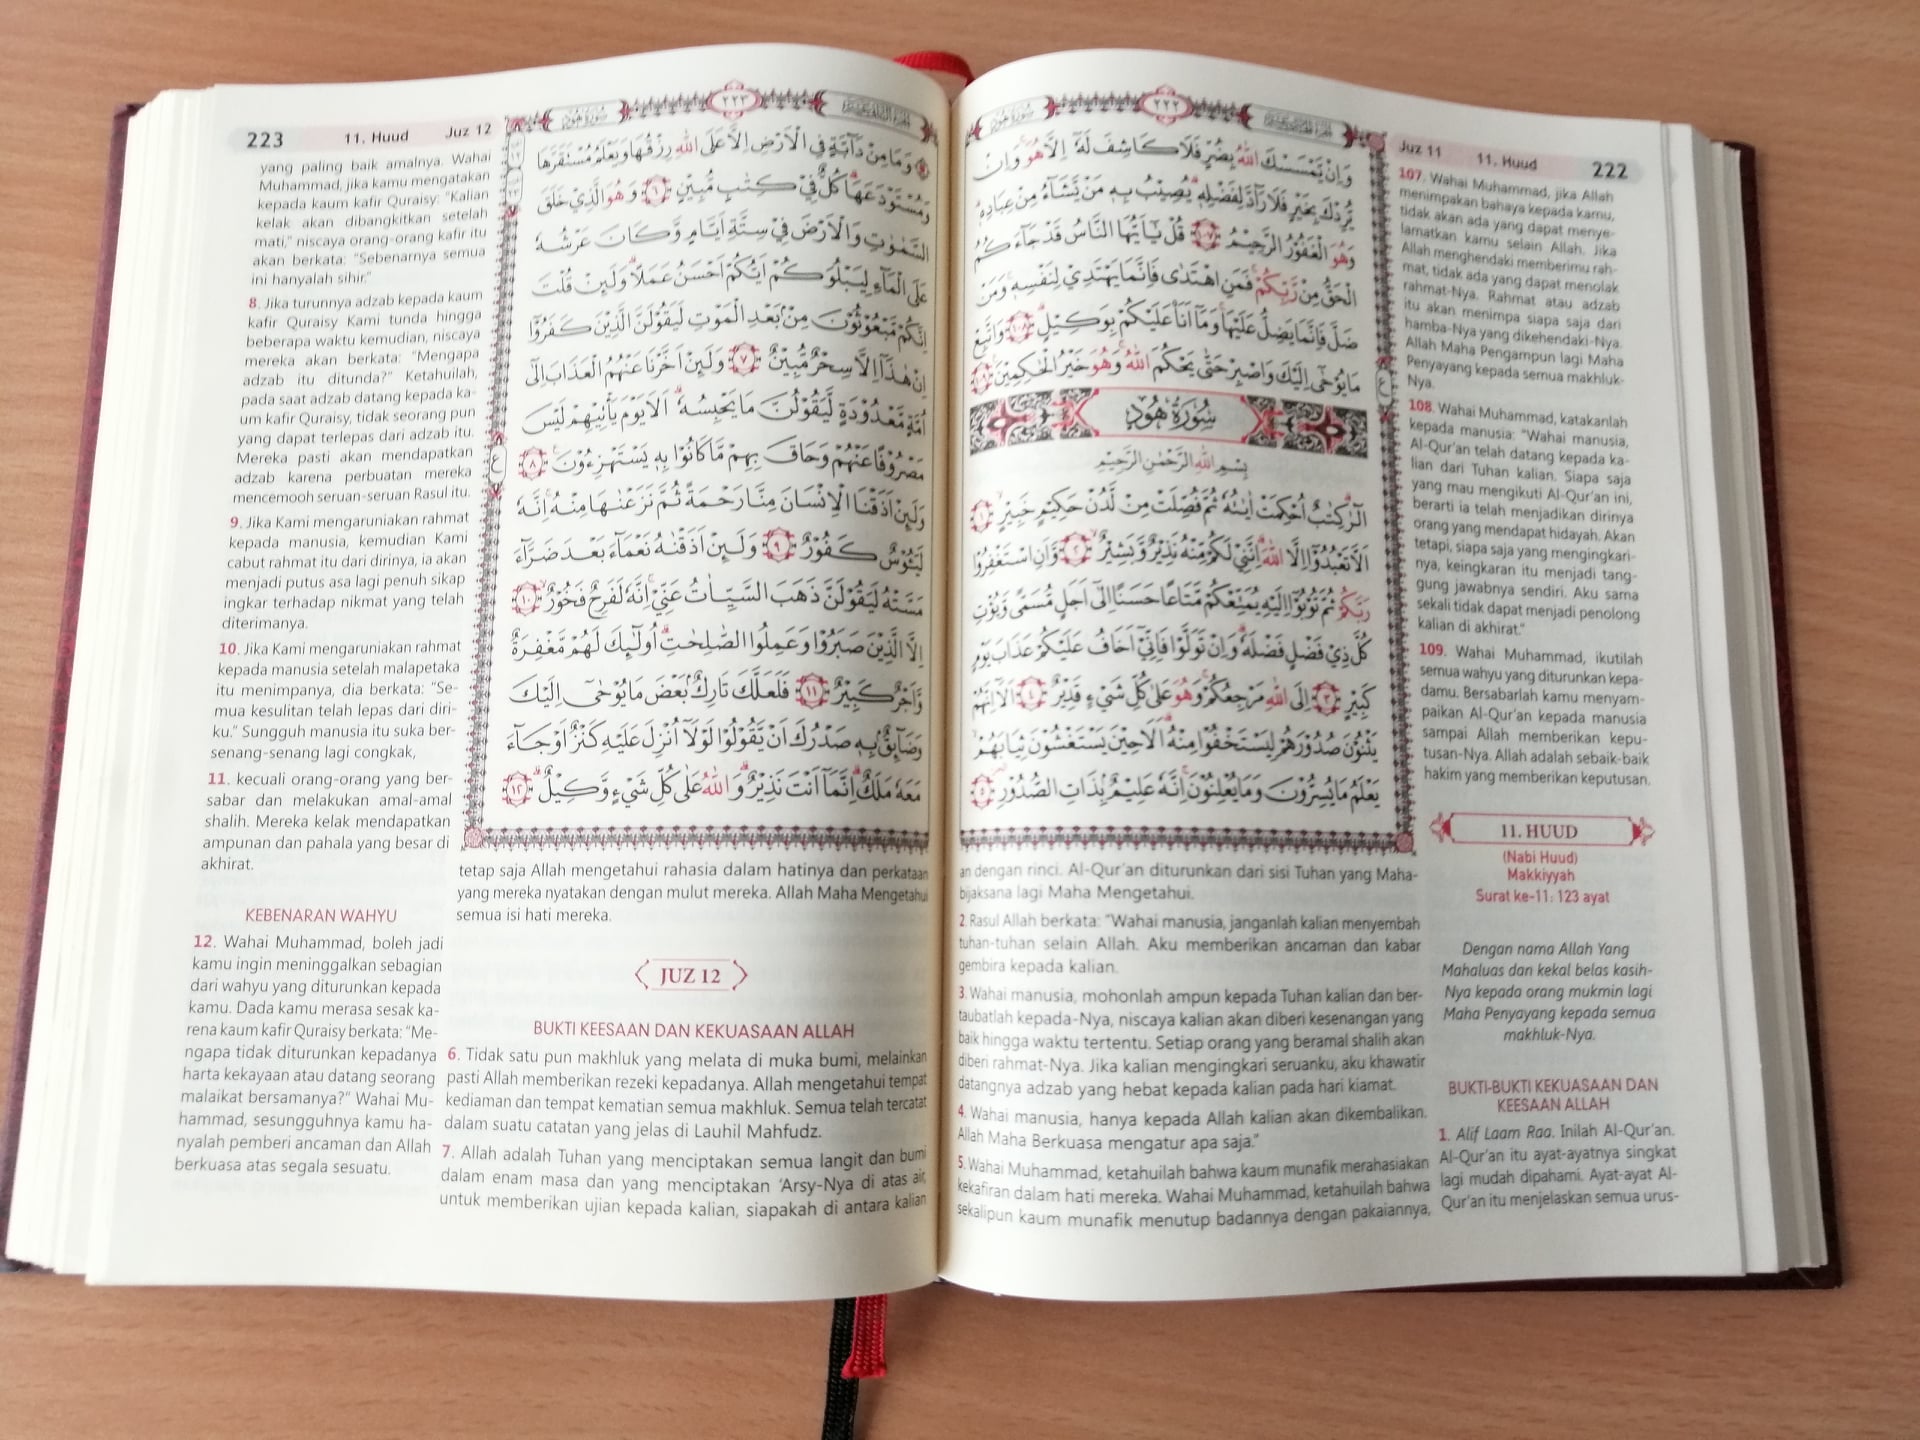 Juz 11 11. Huud 222
٢٢٢
وَاِنْ يَّمْسَسْكَ اللّٰهُ بِضُرٍّ فَلَا كَاشِفَ لَهٗٓ اِلَّا هُوَ ۚوَاِنْ
يُّرِدْكَ بِخَيْرٍ فَلَا رَاۤدَّ لِفَضْلِهٖۗ يُصِيْبُ بِهٖ مَنْ يَّشَاۤءُ مِنْ عِبَادِهٖۗ
وَهُوَ الْغَفُوْرُ الرَّحِيْمُ ﴿١٠٧﴾ قُلْ يٰٓاَيُّهَا النَّاسُ قَدْ جَاۤءَكُمُ
الْحَقُّ مِنْ رَّبِّكُمْ ۚفَمَنِ اهْتَدٰى فَاِنَّمَا يَهْتَدِيْ لِنَفْسِهٖ ۚوَمَنْ
ضَلَّ فَاِنَّمَا يَضِلُّ عَلَيْهَا ۚوَمَآ اَنَا۠ عَلَيْكُمْ بِوَكِيْلٍۗ ﴿١٠٨﴾ وَاتَّبِعْ
مَا يُوْحٰٓى اِلَيْكَ وَاصْبِرْ حَتّٰى يَحْكُمَ اللّٰهُ ۚوَهُوَ خَيْرُ الْحٰكِمِيْنَ ﴿١٠٩﴾
سُوْرَةُ هُوْدٍ
بِسْمِ اللّٰهِ الرَّحْمٰنِ الرَّحِيْمِ
الۤرٰ ۗ كِتٰبٌ اُحْكِمَتْ اٰيٰتُهٗ ثُمَّ فُصِّلَتْ مِنْ لَّدُنْ حَكِيْمٍ خَبِيْرٍۙ ﴿١﴾
اَلَّا تَعْبُدُوْٓا اِلَّا اللّٰهَ ۗاِنَّنِيْ لَكُمْ مِّنْهُ نَذِيْرٌ وَّبَشِيْرٌۙ ﴿٢﴾ وَّاَنِ اسْتَغْفِرُوْا
رَبَّكُمْ ثُمَّ تُوْبُوْٓا اِلَيْهِ يُمَتِّعْكُمْ مَّتَاعًا حَسَنًا اِلٰٓى اَجَلٍ مُّسَمًّى وَّيُؤْتِ
كُلَّ ذِيْ فَضْلٍ فَضْلَهٗ ۗوَاِنْ تَوَلَّوْا فَاِنِّيْٓ اَخَافُ عَلَيْكُمْ عَذَابَ يَوْمٍ
كَبِيْرٍ ﴿٣﴾ اِلَى اللّٰهِ مَرْجِعُكُمْ ۚوَهُوَ عَلٰى كُلِّ شَيْءٍ قَدِيْرٌ ﴿٤﴾ اَلَآ اِنَّهُمْ
يَثْنُوْنَ صُدُوْرَهُمْ لِيَسْتَخْفُوْا مِنْهُ ۗاَلَا حِيْنَ يَسْتَغْشُوْنَ ثِيَابَهُمْ ۙ
يَعْلَمُ مَا يُسِرُّوْنَ وَمَا يُعْلِنُوْنَ ۚاِنَّهٗ عَلِيْمٌۢ بِذَاتِ الصُّدُوْرِ ﴿٥﴾
107. Wahai Muhammad, jika Allah
menimpakan bahaya kepada kamu,
tidak akan ada yang dapat menye-
lamatkan kamu selain Allah. Jika
Allah menghendaki memberimu rah-
mat, tidak ada yang dapat menolak
rahmat-Nya. Rahmat atau adzab
itu akan menimpa siapa saja dari
hamba-Nya yang dikehendaki-Nya.
Allah Maha Pengampun lagi Maha
Penyayang kepada semua makhluk-
Nya.
108. Wahai Muhammad, katakanlah
kepada manusia: "Wahai manusia,
Al-Qur'an telah datang kepada ka-
lian dari Tuhan kalian. Siapa saja
yang mau mengikuti Al-Qur'an ini,
berarti ia telah menjadikan dirinya
orang yang mendapat hidayah. Akan
tetapi, siapa saja yang mengingkari-
nya, keingkaran itu menjadi tang-
gung jawabnya sendiri. Aku sama
sekali tidak dapat menjadi penolong
kalian di akhirat."
109. Wahai Muhammad, ikutilah
semua wahyu yang diturunkan kepa-
damu. Bersabarlah kamu menyam-
paikan Al-Qur'an kepada manusia
sampai Allah memberikan kepu-
tusan-Nya. Allah adalah sebaik-baik
hakim yang memberikan keputusan.
11. HUUD
(Nabi Huud)
Makkiyyah
Surat ke-11: 123 ayat
Dengan nama Allah Yang
Mahaluas dan kekal belas kasih-
Nya kepada orang mukmin lagi
Maha Penyayang kepada semua
makhluk-Nya.
BUKTI-BUKTI KEKUASAAN DAN
KEESAAN ALLAH
1. Alif Laam Raa. Inilah Al-Qur'an.
Al-Qur'an itu ayat-ayatnya singkat
lagi mudah dipahami. Ayat-ayat Al-
Qur'an itu menjelaskan semua urus-
an dengan rinci. Al-Qur'an diturunkan dari sisi Tuhan yang Maha-
bijaksana lagi Maha Mengetahui.
2. Rasul Allah berkata: "Wahai manusia, janganlah kalian menyembah
tuhan-tuhan selain Allah. Aku memberikan ancaman dan kabar
gembira kepada kalian.
3. Wahai manusia, mohonlah ampun kepada Tuhan kalian dan ber-
taubatlah kepada-Nya, niscaya kalian akan diberi kesenangan yang
baik hingga waktu tertentu. Setiap orang yang beramal shalih akan
diberi rahmat-Nya. Jika kalian mengingkari seruanku, aku khawatir
datangnya adzab yang hebat kepada kalian pada hari kiamat.
4. Wahai manusia, hanya kepada Allah kalian akan dikembalikan.
Allah Maha Berkuasa mengatur apa saja."
5. Wahai Muhammad, ketahuilah bahwa kaum munafik merahasiakan
kekafiran dalam hati mereka. Wahai Muhammad, ketahuilah bahwa
sekalipun kaum munafik menutup badannya dengan pakaiannya,
223 11. Huud Juz 12
٢٢٣
وَمَا مِنْ دَاۤبَّةٍ فِى الْاَرْضِ اِلَّا عَلَى اللّٰهِ رِزْقُهَا وَيَعْلَمُ مُسْتَقَرَّهَا
وَمُسْتَوْدَعَهَا ۗ كُلٌّ فِيْ كِتٰبٍ مُّبِيْنٍ ﴿٦﴾ وَهُوَ الَّذِيْ خَلَقَ
السَّمٰوٰتِ وَالْاَرْضَ فِيْ سِتَّةِ اَيَّامٍ وَّكَانَ عَرْشُهٗ
عَلَى الْمَاۤءِ لِيَبْلُوَكُمْ اَيُّكُمْ اَحْسَنُ عَمَلًا ۗوَلَىِٕنْ قُلْتَ
اِنَّكُمْ مَّبْعُوْثُوْنَ مِنْۢ بَعْدِ الْمَوْتِ لَيَقُوْلَنَّ الَّذِيْنَ كَفَرُوْٓا
اِنْ هٰذَآ اِلَّا سِحْرٌ مُّبِيْنٌ ﴿٧﴾ وَلَىِٕنْ اَخَّرْنَا عَنْهُمُ الْعَذَابَ اِلٰٓى
اُمَّةٍ مَّعْدُوْدَةٍ لَّيَقُوْلُنَّ مَا يَحْبِسُهٗ ۗ اَلَا يَوْمَ يَأْتِيْهِمْ لَيْسَ
مَصْرُوْفًا عَنْهُمْ وَحَاقَ بِهِمْ مَّا كَانُوْا بِهٖ يَسْتَهْزِءُوْنَ ﴿٨﴾
وَلَىِٕنْ اَذَقْنَا الْاِنْسَانَ مِنَّا رَحْمَةً ثُمَّ نَزَعْنٰهَا مِنْهُ ۚاِنَّهٗ
لَيَـُٔوْسٌ كَفُوْرٌ ﴿٩﴾ وَلَىِٕنْ اَذَقْنٰهُ نَعْمَاۤءَ بَعْدَ ضَرَّاۤءَ
مَسَّتْهُ لَيَقُوْلَنَّ ذَهَبَ السَّيِّاٰتُ عَنِّيْ ۗاِنَّهٗ لَفَرِحٌ فَخُوْرٌۙ ﴿١٠﴾
اِلَّا الَّذِيْنَ صَبَرُوْا وَعَمِلُوا الصّٰلِحٰتِۗ اُولٰۤىِٕكَ لَهُمْ مَّغْفِرَةٌ
وَّاَجْرٌ كَبِيْرٌ ﴿١١﴾ فَلَعَلَّكَ تَارِكٌۢ بَعْضَ مَا يُوْحٰٓى اِلَيْكَ
وَضَاۤىِٕقٌۢ بِهٖ صَدْرُكَ اَنْ يَّقُوْلُوْا لَوْلَآ اُنْزِلَ عَلَيْهِ كَنْزٌ اَوْ جَاۤءَ
مَعَهٗ مَلَكٌ ۗاِنَّمَآ اَنْتَ نَذِيْرٌ ۗ وَاللّٰهُ عَلٰى كُلِّ شَيْءٍ وَّكِيْلٌ ۗ ﴿١٢﴾
tetap saja Allah mengetahui rahasia dalam hatinya dan perkataan
yang mereka nyatakan dengan mulut mereka. Allah Maha Mengetahui
semua isi hati mereka.
JUZ 12
BUKTI KEESAAN DAN KEKUASAAN ALLAH
6. Tidak satu pun makhluk yang melata di muka bumi, melainkan
pasti Allah memberikan rezeki kepadanya. Allah mengetahui tempat
kediaman dan tempat kematian semua makhluk. Semua telah tercatat
dalam suatu catatan yang jelas di Lauhil Mahfudz.
7. Allah adalah Tuhan yang menciptakan semua langit dan bumi
dalam enam masa dan yang menciptakan 'Arsy-Nya di atas air,
untuk memberikan ujian kepada kalian, siapakah di antara kalian
yang paling baik amalnya. Wahai
Muhammad, jika kamu mengatakan
kepada kaum kafir Quraisy: "Kalian
kelak akan dibangkitkan setelah
mati," niscaya orang-orang kafir itu
akan berkata: "Sebenarnya semua
ini hanyalah sihir."
8. Jika turunnya adzab kepada kaum
kafir Quraisy Kami tunda hingga
beberapa waktu kemudian, niscaya
mereka akan berkata: "Mengapa
adzab itu ditunda?" Ketahuilah,
pada saat adzab datang kepada ka-
um kafir Quraisy, tidak seorang pun
yang dapat terlepas dari adzab itu.
Mereka pasti akan mendapatkan
adzab karena perbuatan mereka
mencemooh seruan-seruan Rasul itu.
9. Jika Kami mengaruniakan rahmat
kepada manusia, kemudian Kami
cabut rahmat itu dari dirinya, ia akan
menjadi putus asa lagi penuh sikap
ingkar terhadap nikmat yang telah
diterimanya.
10. Jika Kami mengaruniakan rahmat
kepada manusia setelah malapetaka
itu menimpanya, dia berkata: "Se-
mua kesulitan telah lepas dari diri-
ku." Sungguh manusia itu suka ber-
senang-senang lagi congkak,
11. kecuali orang-orang yang ber-
sabar dan melakukan amal-amal
shalih. Mereka kelak mendapatkan
ampunan dan pahala yang besar di
akhirat.
KEBENARAN WAHYU
12. Wahai Muhammad, boleh jadi
kamu ingin meninggalkan sebagian
dari wahyu yang diturunkan kepada
kamu. Dada kamu merasa sesak ka-
rena kaum kafir Quraisy berkata: "Me-
ngapa tidak diturunkan kepadanya
harta kekayaan atau datang seorang
malaikat bersamanya?" Wahai Mu-
hammad, sesungguhnya kamu ha-
nyalah pemberi ancaman dan Allah
berkuasa atas segala sesuatu.